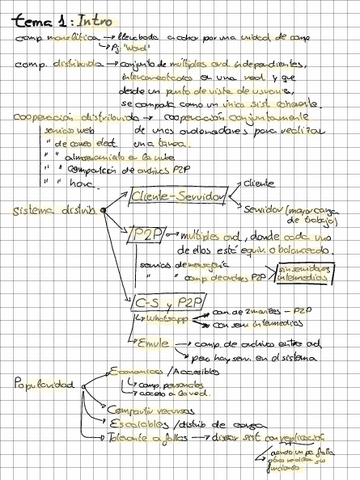 tema 1: Intro
comp. monolítica → llevada a cabo por una unidad de comp
↳ Pj. "Word"
comp. distribuida → conjunto de múltiples ord. independientes,
interconectados en una red y que
desde un punto de vista de usuario,
se comporta como un único sist. coherente.
cooperación distribuida → cooperación conjuntamente
servicio web de unos ordenadores para realizar
" de correo elect. una tarea.
" " almacenamiento en la nube
" " compartición de archivos P2P
" "
Sistema distrib.
Cliente-Servidor
cliente
Servidor (mayor carga de trabajo)
P2P → múltiples ord, donde cada uno
de ellos está equiv. o balanceado.
servicios de mensajería
" comp de archivos P2P
sin servidores
intermedios
C-S y P2P
↳ Whatsapp
con serv intermedios
↳ Emule → comp. de archivos entre ord
pero hay serv. en el sistema
Popularidad
Económicos / Accesibles
↳ comp. personales
acceso a la red
Compartir recursos
Escalables / distr de carga
Tolerante a fallos → diseñar sist con replicación